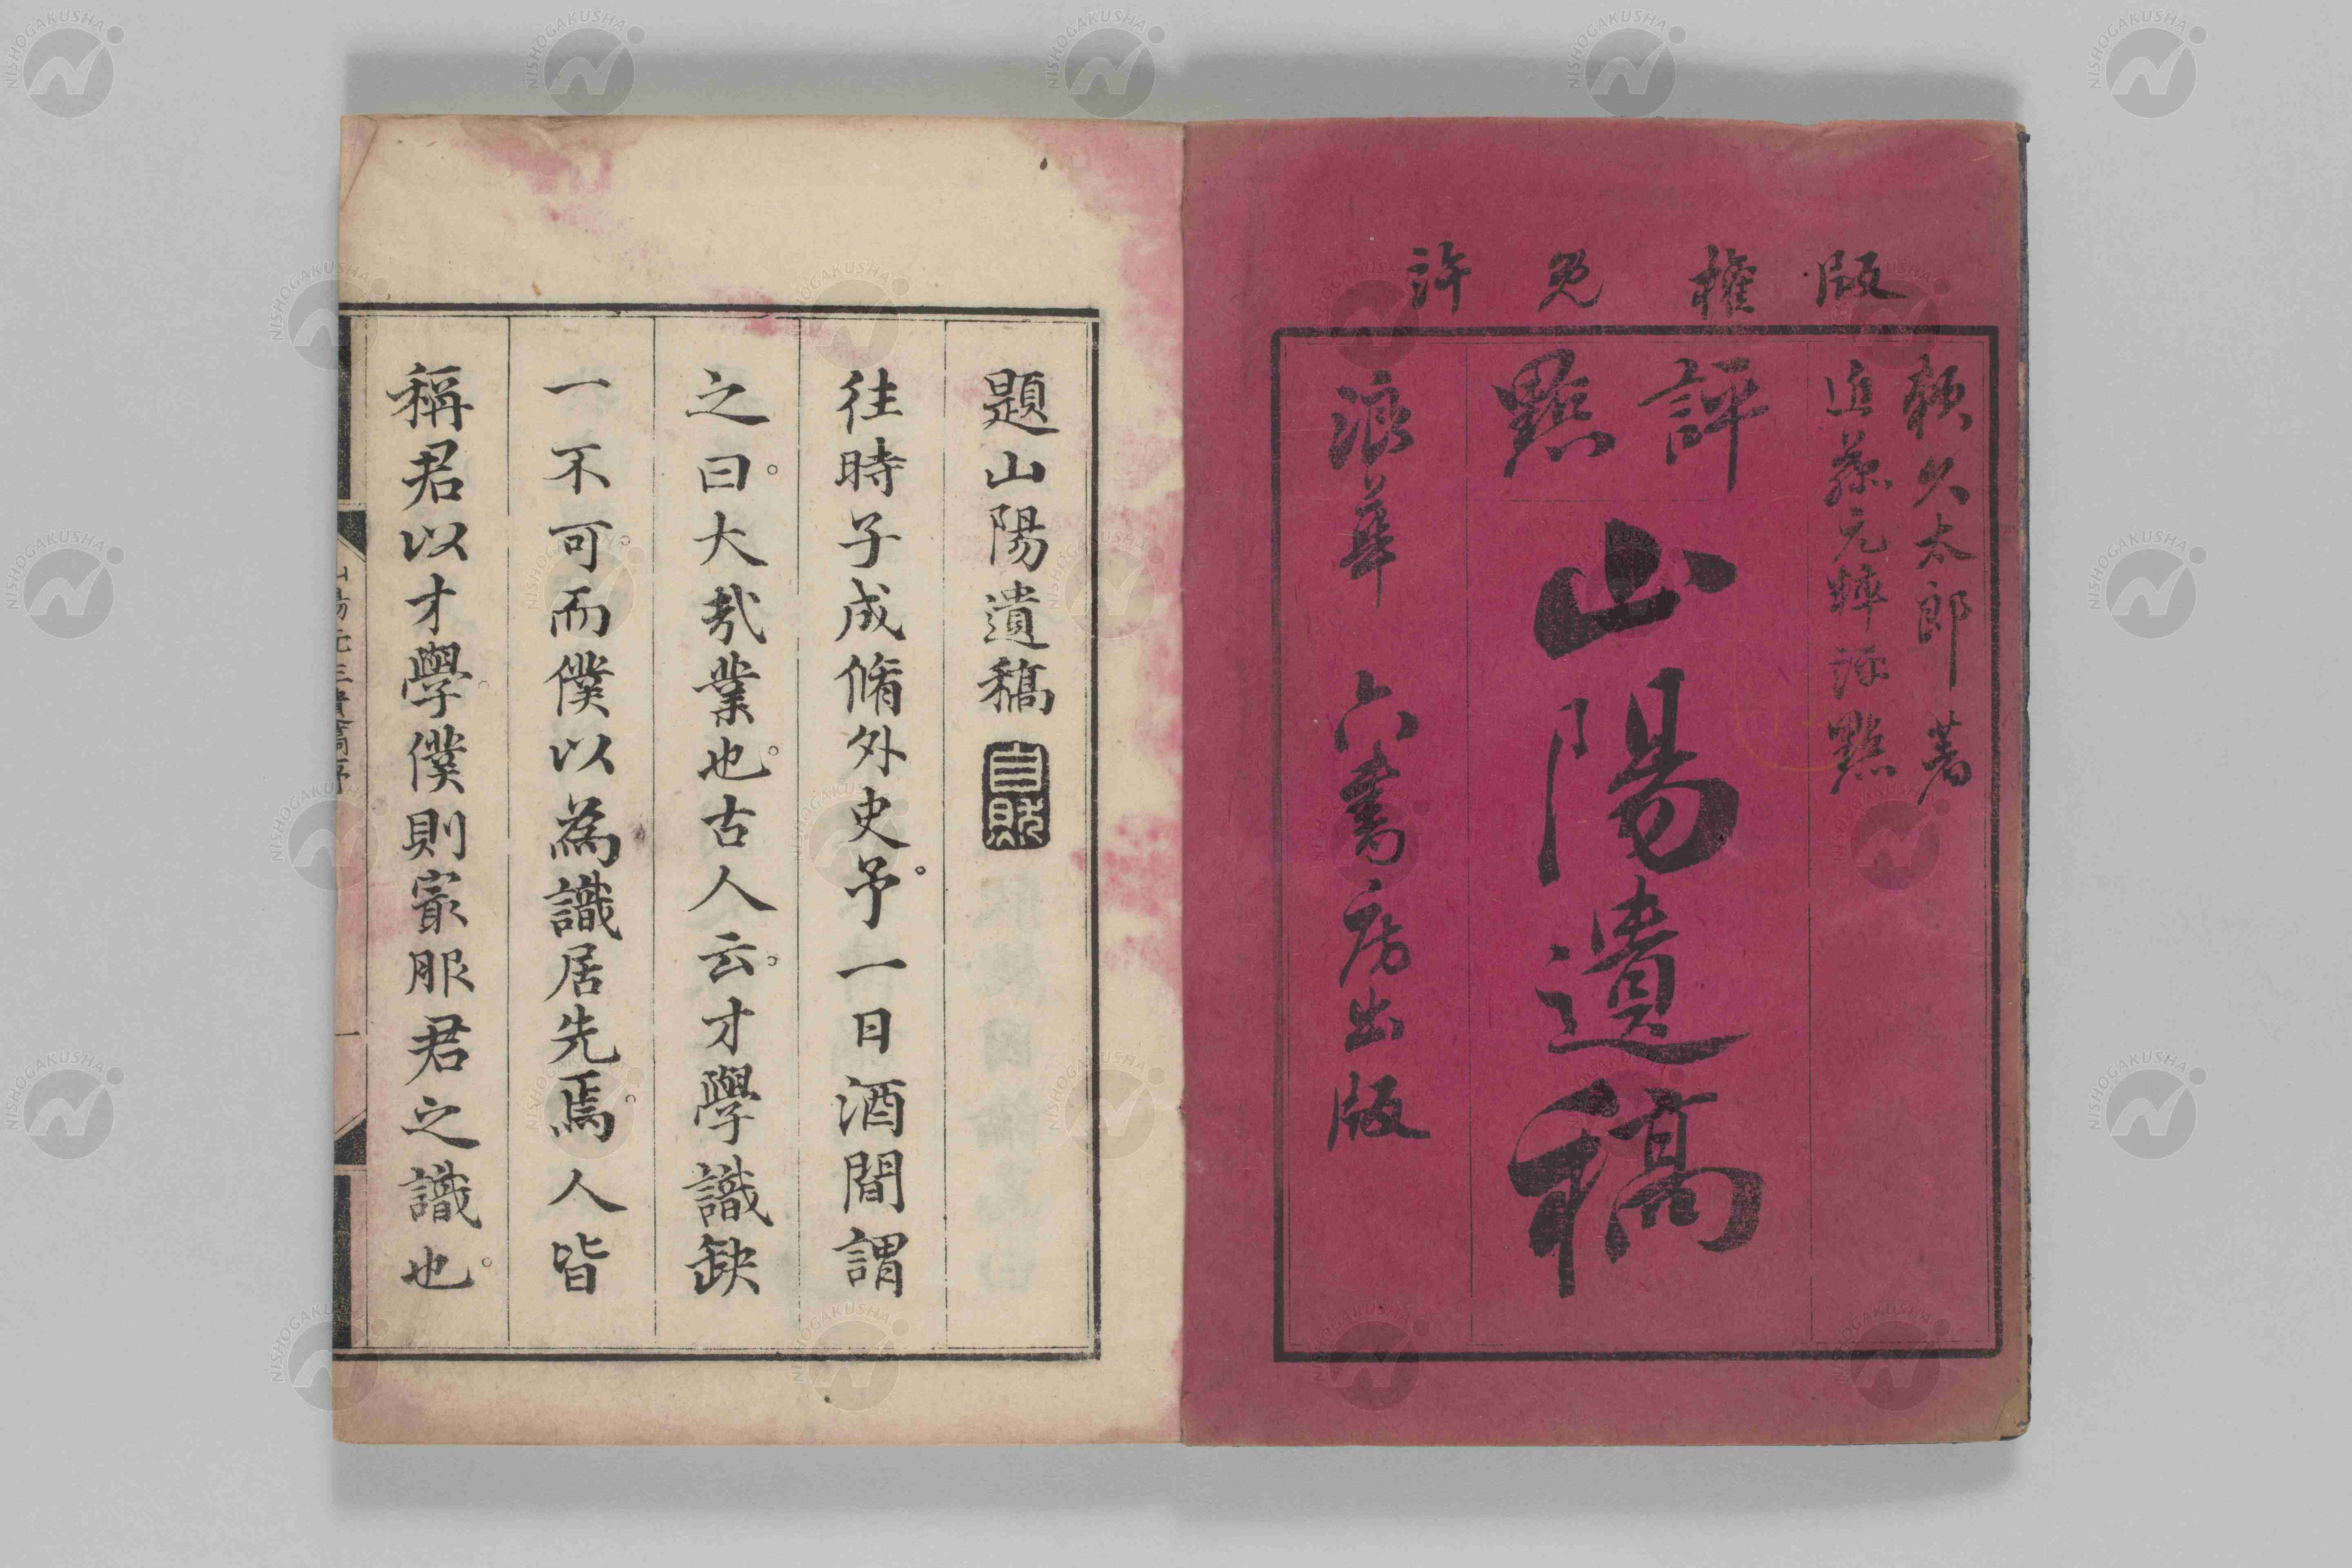 版權免許
賴久太郎著
近藤元粹評點
評點
山陽遺稿
浪華 六書房出版
題山陽遺稿
往時子成脩外史。予一日酒間謂
之曰。大哉業也。古人云。才學識缺
一不可。而僕以為識居先焉。人皆
稱君以才學。僕則寂服君之識也。
NISHOGAKUSHA